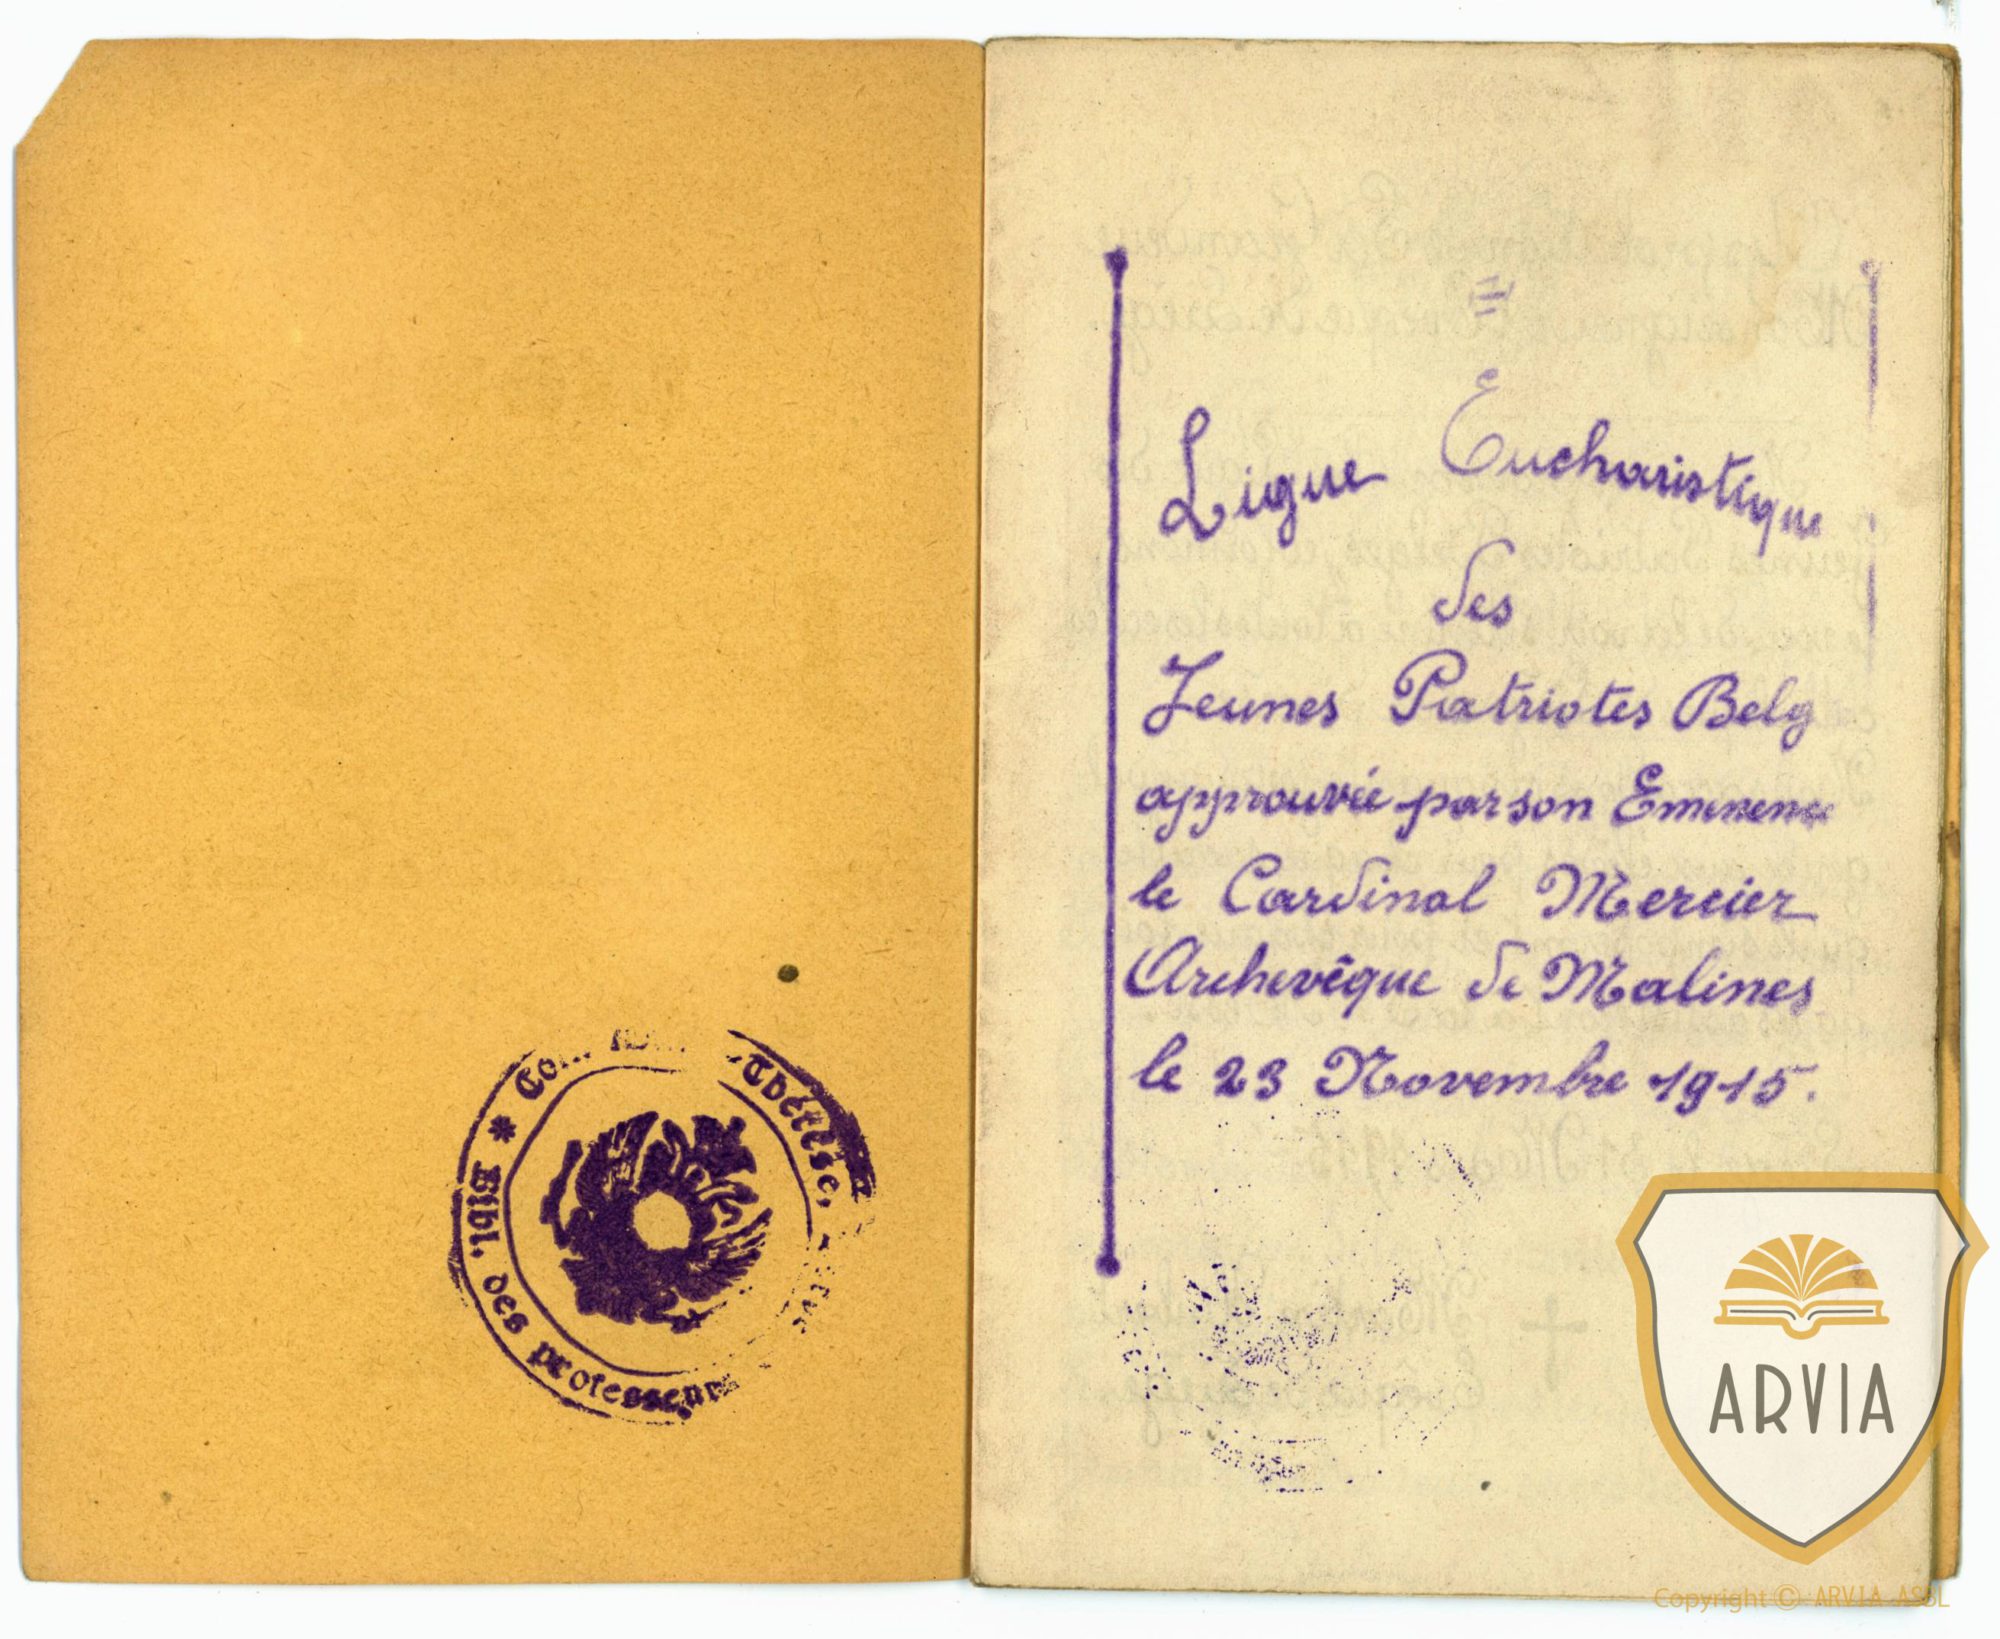 Bibl. des professeurs
Ligue Eucharistique
des
Jeunes Patriotes Belg
approuvée par son Eminence
le Cardinal Mercier
Archevêque de Malines
le 23 Novembre 1915.
ARVIA
Copyright © ARVIA ASBL